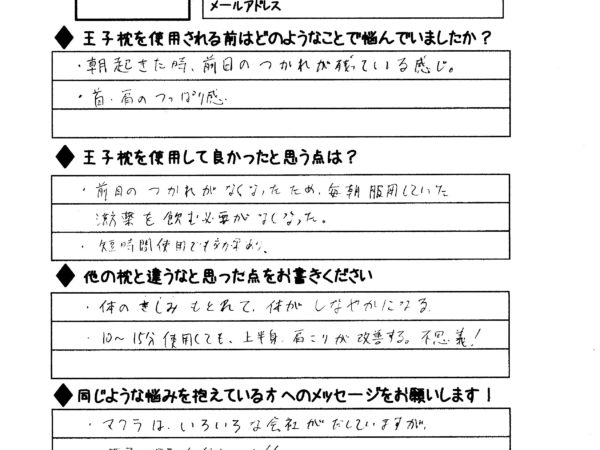 メールアドレス
◆ 王子枕を使用される前はどのようなことで悩んでいましたか？
・朝起きた時、前日のつかれが残っている感じ。
・首、肩のつっぱり感
◆ 王子枕を使用して良かったと思う点は？
・前日のつかれがなくなったため、毎朝服用していた
漢方薬を飲む必要がなくなった。
・短時間使用でも効果あり、
◆ 他の枕と違うなと思った点をお書きください
・体のきしみもとれて、体がしなやかになる
・10～15分使用しても、上半身、肩こりが改善する。不思議！
◆ 同じような悩みを抱えている方へのメッセージをお願いします！
・マクラは、いろいろな会社がだしていますが、